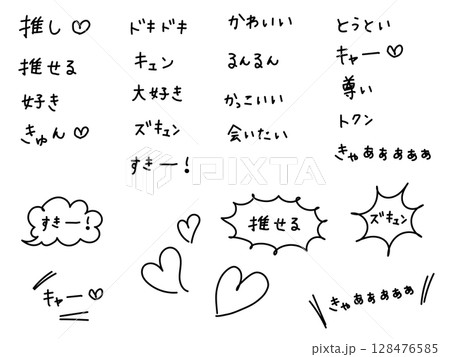 推し♡
推せる
好き
きゅん♡
ドキドキ
キュン
大好き
ズキュン
すきー!
かわいい
るんるん
かっこいい
会いたい
とうとい
キャー♡
尊い
トクン
きゃあああああ
すきー!
推せる
ズキュン
キャー♡
きゃあああああ
PIXTA
128476585